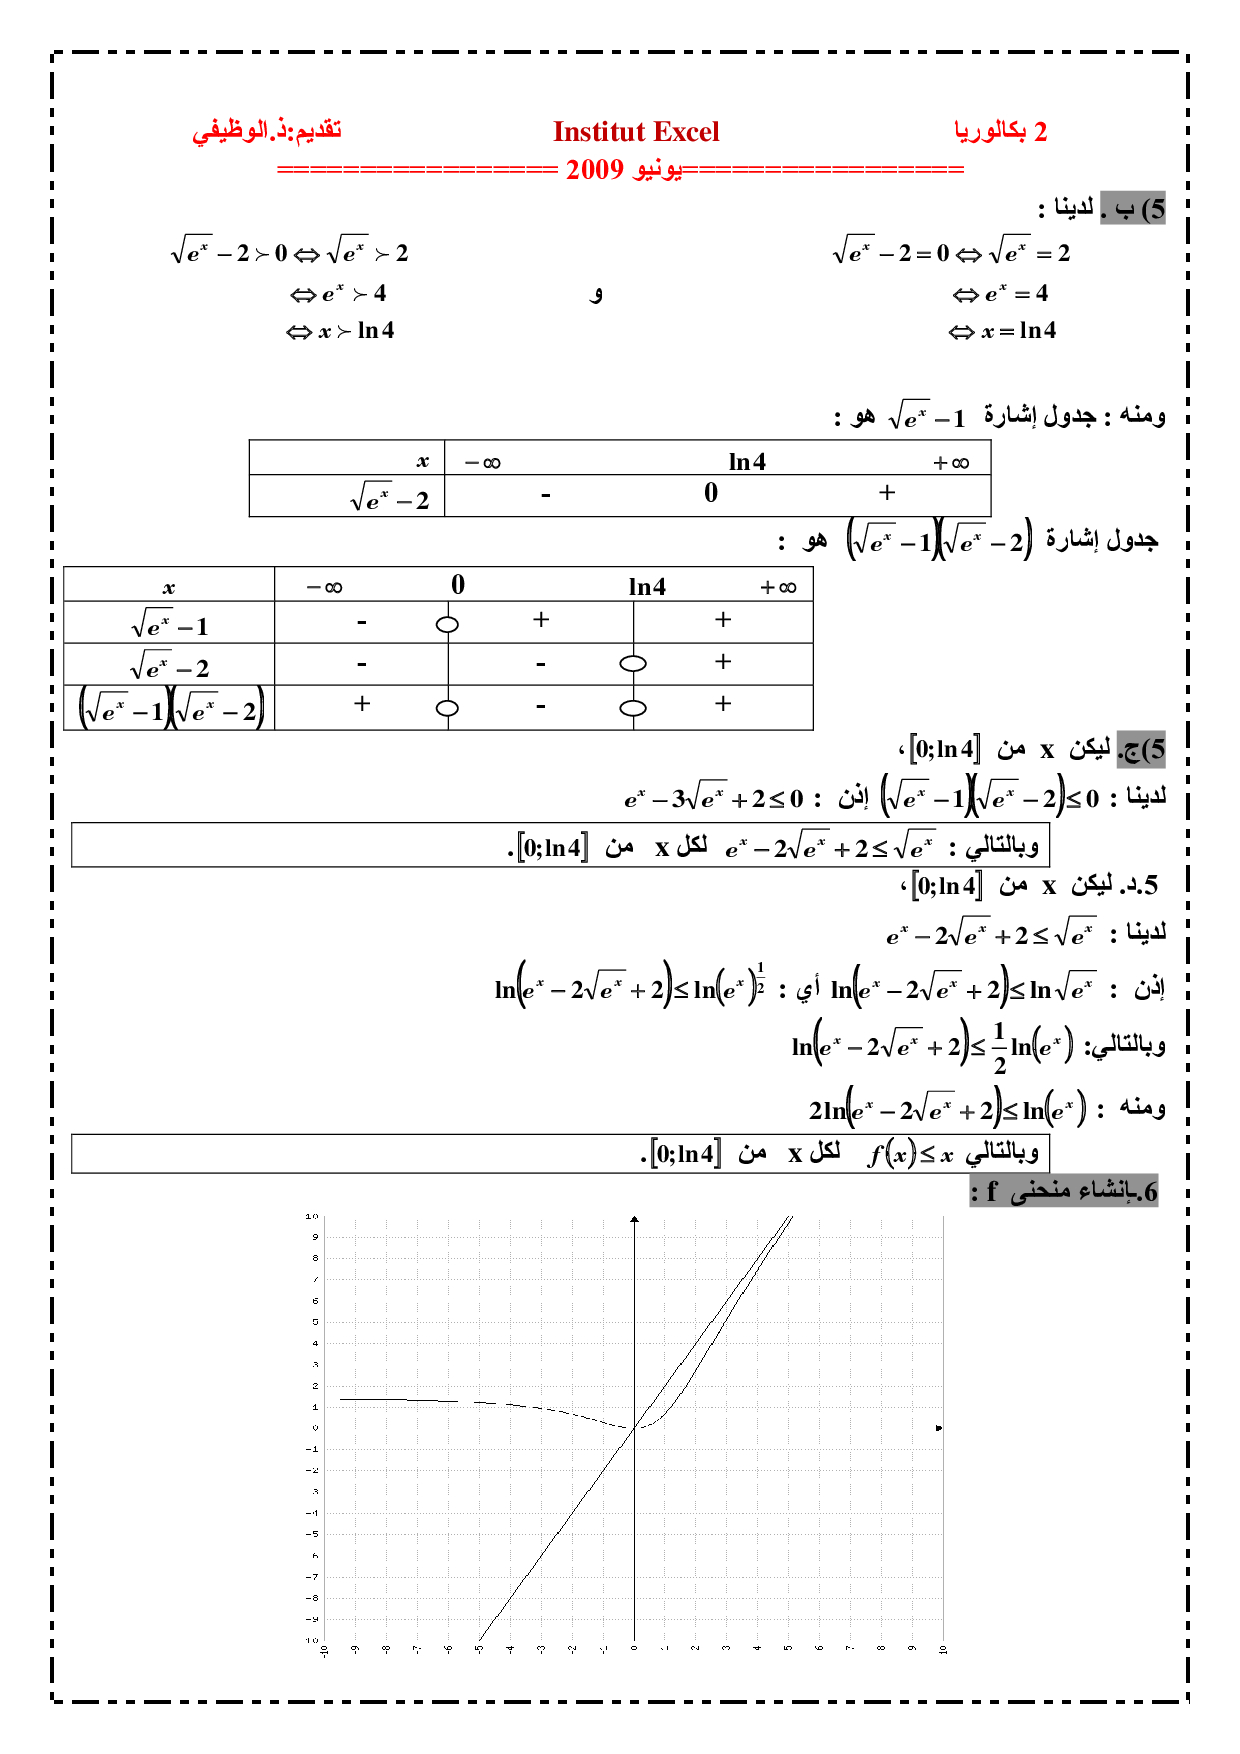 2 بكالوريا Institut Excel تقديم:ذ.الوظيفي
=================يونيو 2009 =================
5) ب . لدينا :
√(eˣ) − 2 = 0 ⇔ √(eˣ) = 2 √(eˣ) − 2 ≻ 0 ⇔ √(eˣ) ≻ 2
⇔ eˣ = 4 و ⇔ eˣ ≻ 4
⇔ x = ln 4 ⇔ x ≻ ln 4
ومنه : جدول إشارة √(eˣ) − 1 هو :
x −∞ ln 4 +∞
√(eˣ) − 2 - 0 +
جدول إشارة (√(eˣ) − 1)(√(eˣ) − 2) هو :
x −∞ 0 ln 4 +∞
√(eˣ) − 1 - + +
√(eˣ) − 2 - - +
(√(eˣ) − 1)(√(eˣ) − 2) + - +
5)ج. ليكن x من [0;ln 4] ،
لدينا : (√(eˣ) − 1)(√(eˣ) − 2) ≤ 0 إذن : eˣ − 3√(eˣ) + 2 ≤ 0
وبالتالي : eˣ − 2√(eˣ) + 2 ≤ √(eˣ) لكل x من [0;ln 4] .
5.د. ليكن x من [0;ln 4] ،
لدينا : eˣ − 2√(eˣ) + 2 ≤ √(eˣ)
إذن : ln(eˣ − 2√(eˣ) + 2) ≤ ln √(eˣ) أي : ln(eˣ − 2√(eˣ) + 2) ≤ ln(eˣ)^(1/2)
وبالتالي: ln(eˣ − 2√(eˣ) + 2) ≤ 1/2 ln(eˣ)
ومنه : 2 ln(eˣ − 2√(eˣ) + 2) ≤ ln(eˣ)
وبالتالي f(x) ≤ x لكل x من [0;ln 4] .
6.إنشاء منحنى f :
10
9
8
7
6
5
4
3
2
1
0
-1
-2
-3
-4
-5
-6
-7
-8
-9
-10
-10 -9 -8 -7 -6 -5 -4 -3 -2 -1 0 1 2 3 4 5 6 7 8 9 10